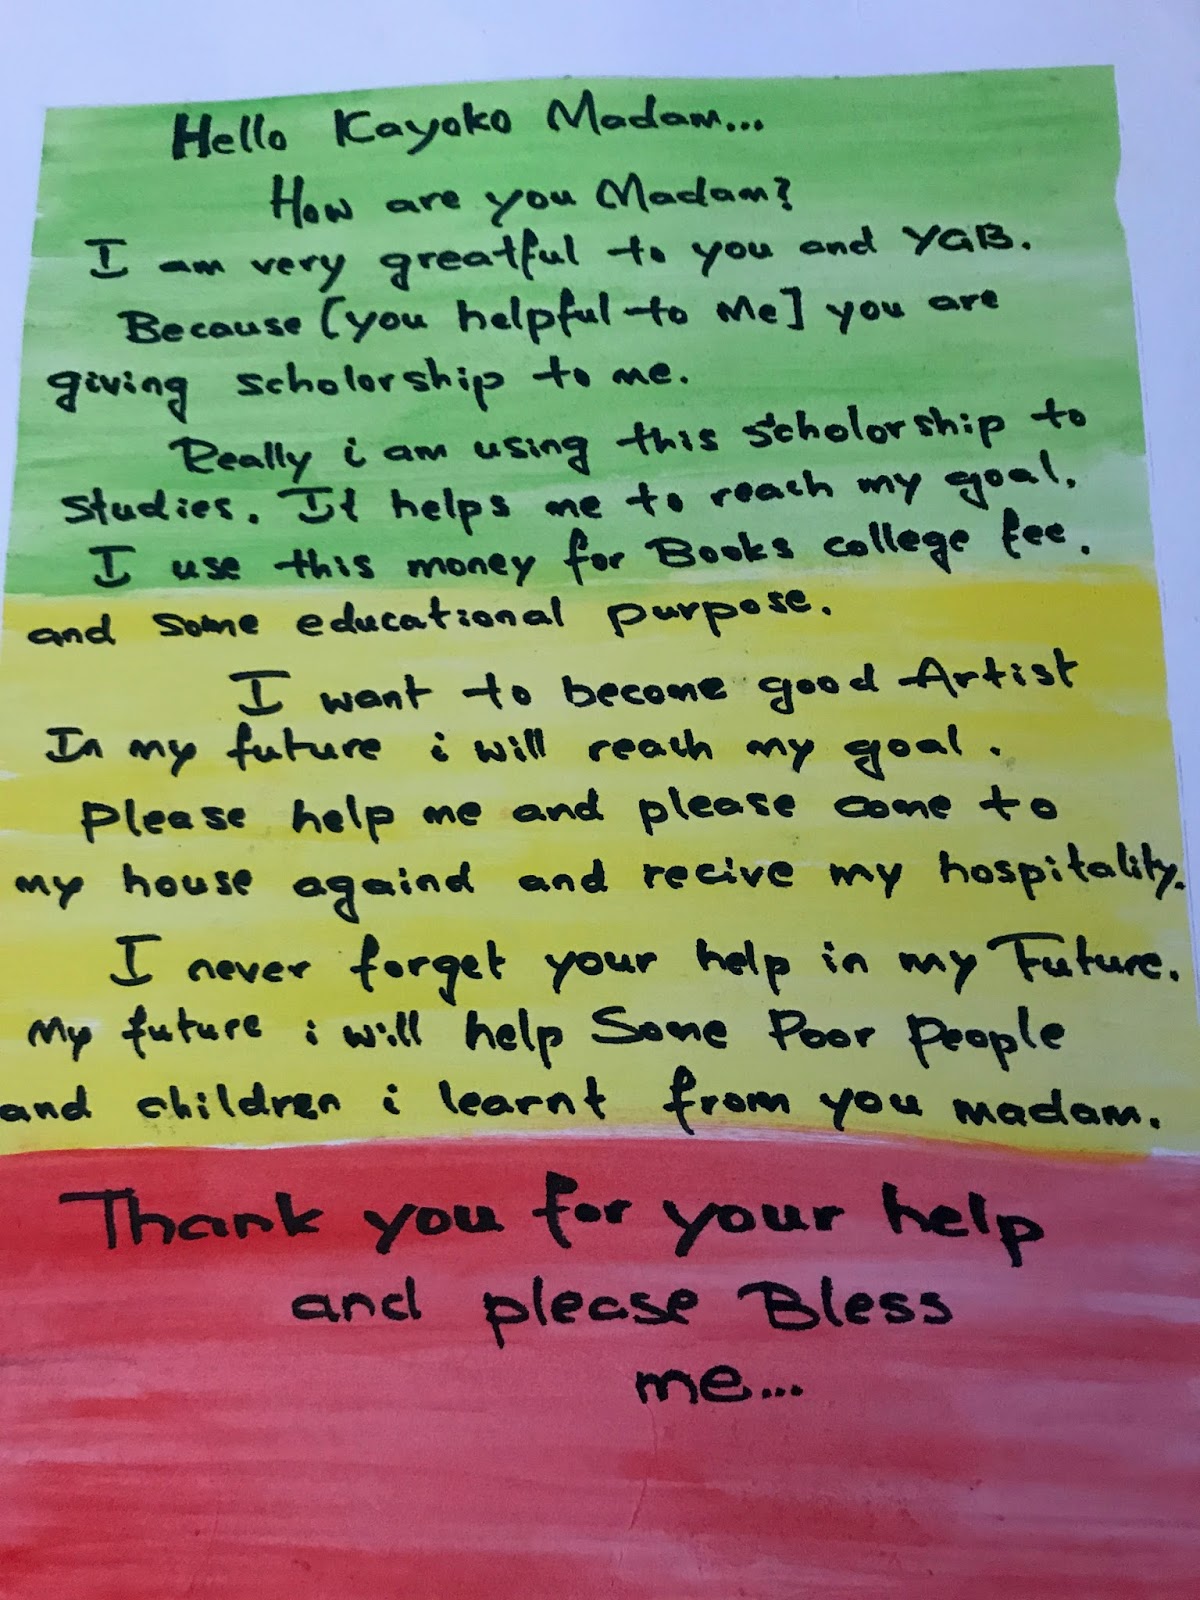 Hello Kayoko Madam...
How are you Madam?
I am very greatful to you and YGB.
Because [you helpful to Me] you are
giving scholorship to me.
Really i am using this scholorship to
studies. It helps me to reach my goal.
I use this money for Books college fee.
and some educational purpose.
I want to become good Artist
In my future i will reach my goal.
Please help me and please come to
my house againd and recive my hospitality.
I never forget your help in my Future.
My future i will help Some Poor People
and children i learnt from you madam.
Thank you for your help
and please Bless
me...